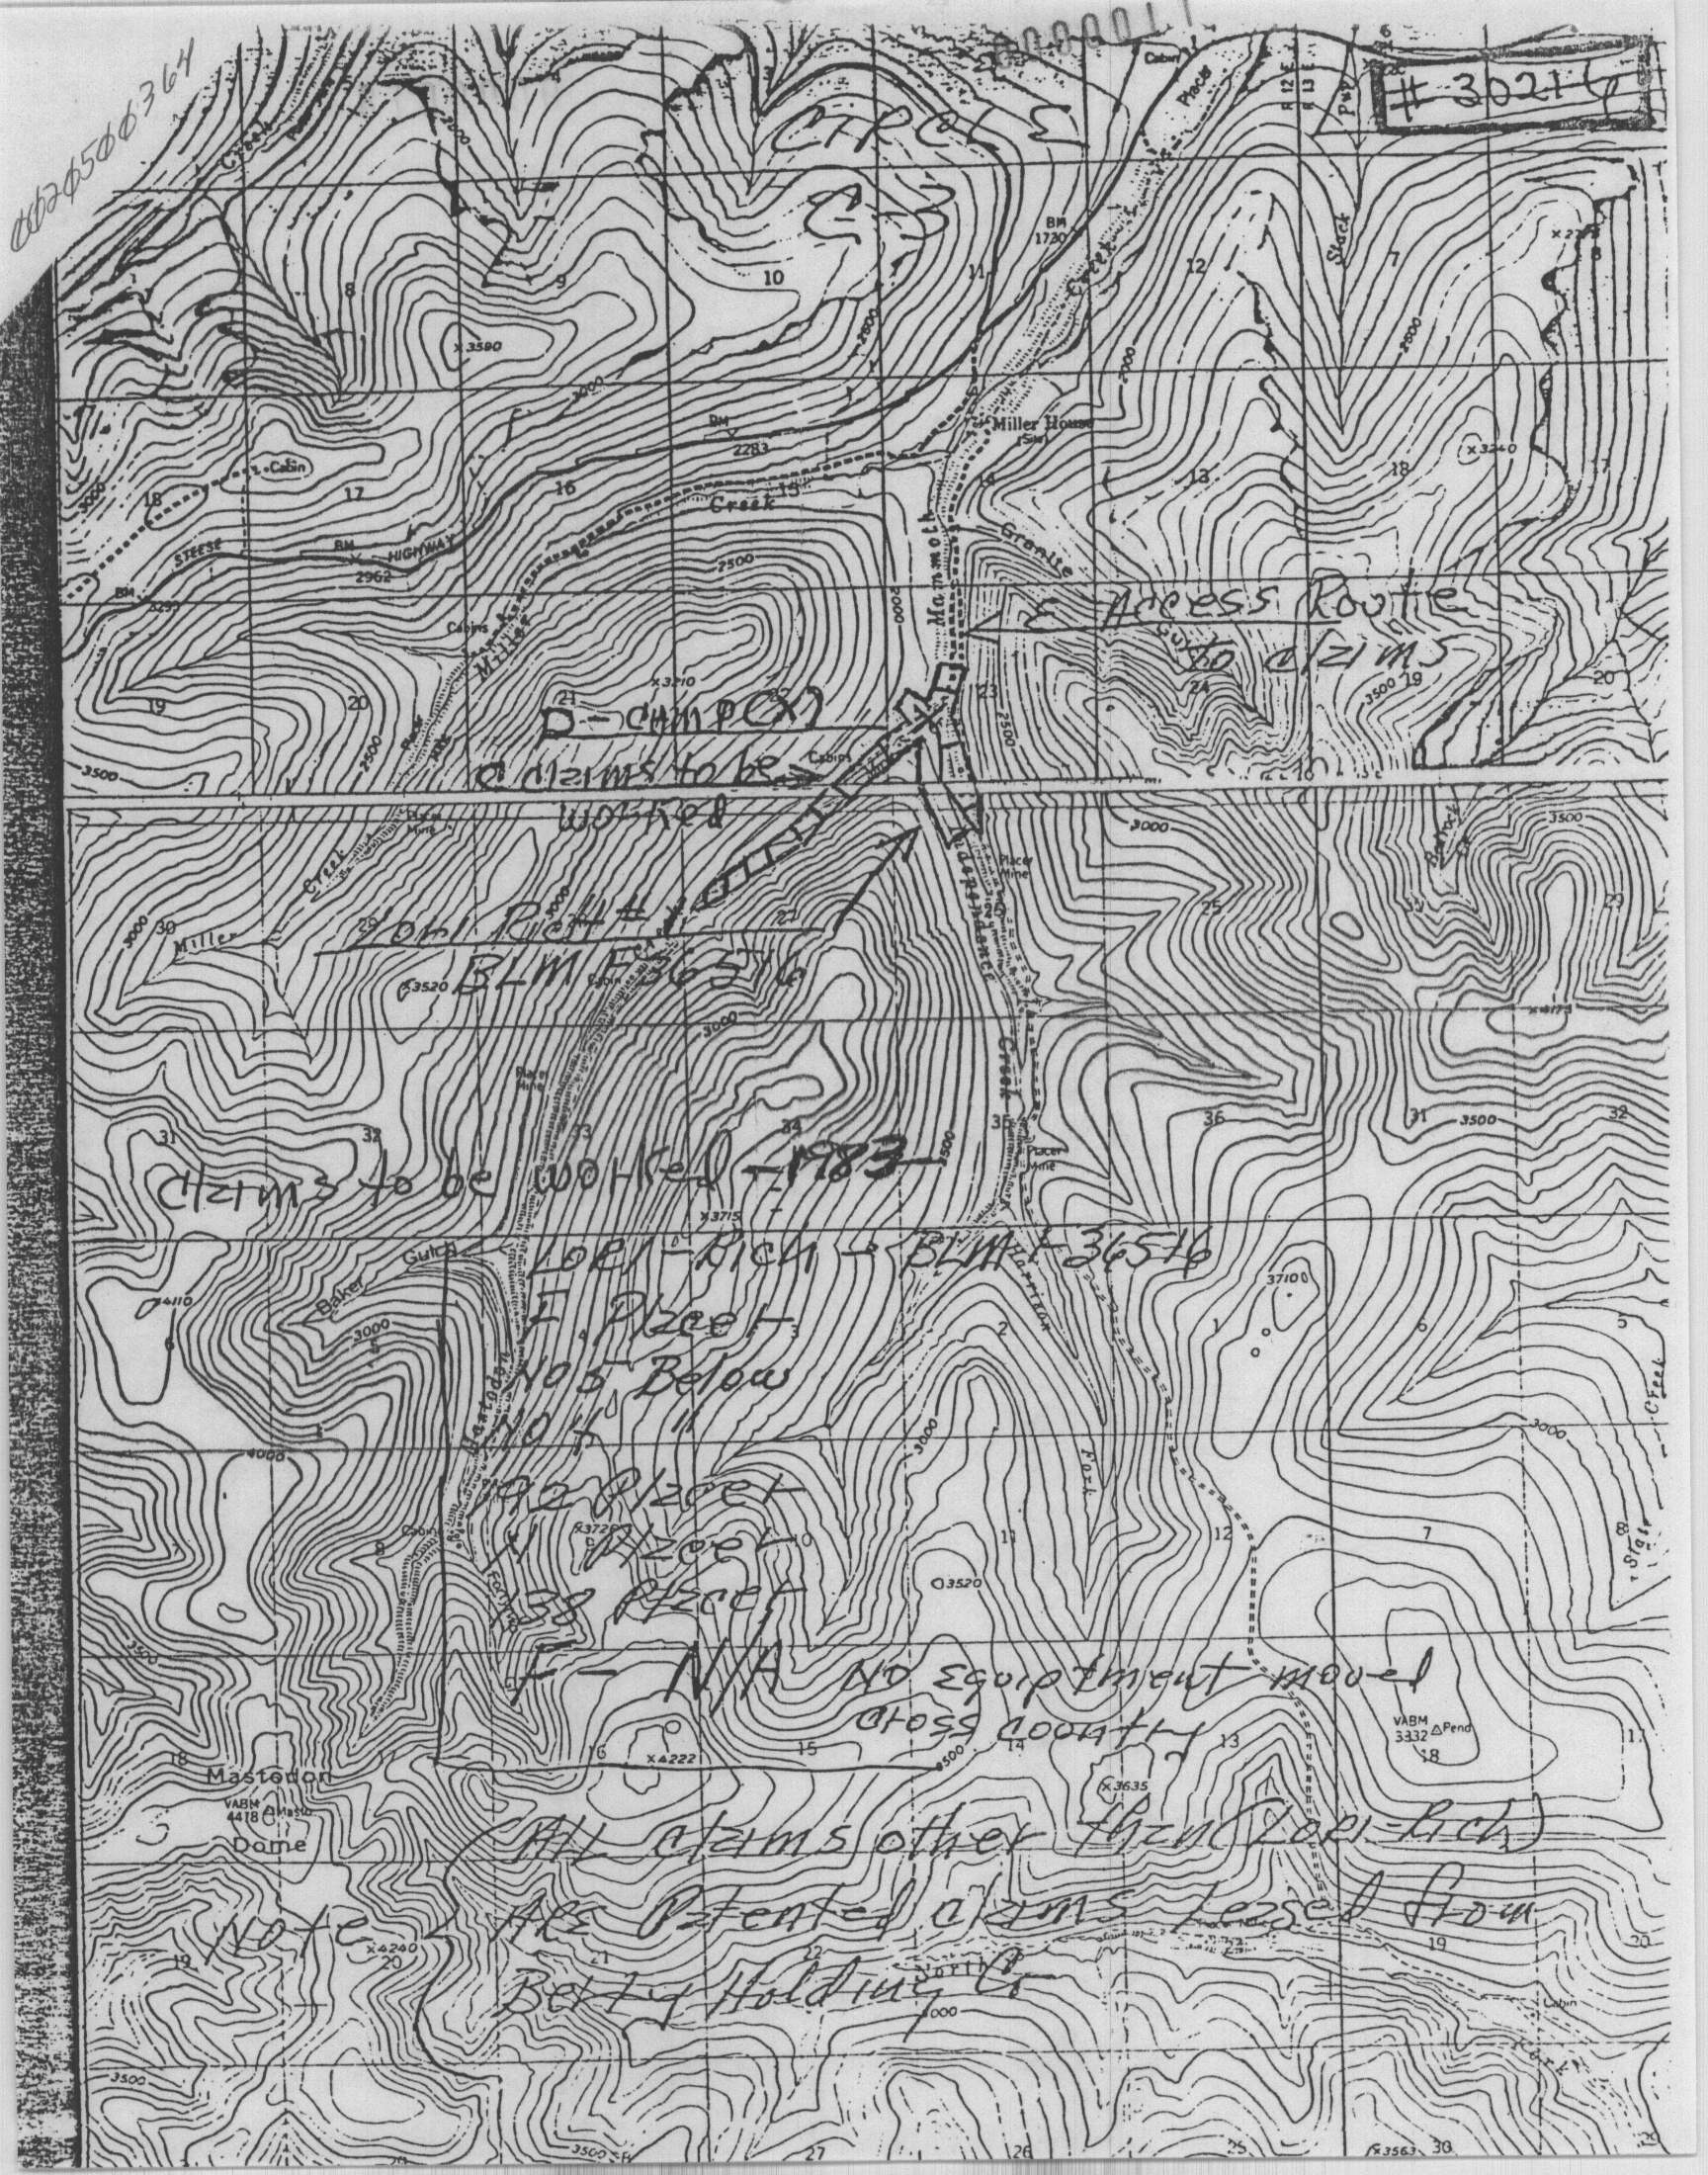 # 30216
CIRCLE
C-3
Cabin
Placer
R 12 E
R 13 E
Pup
Creek
2000
BM
1730
Creek
Slack
8
9
10
11
12
7
x3580
2500
2000
2500
3000
BM
2283
Miller House
(Site)
x3240
Cabin
18
17
16
15
14
13
18
17
3000
Creek
STEESE
BM
HIGHWAY
2962
BM
3295
2500
2000
Mammoth
Granite
E Access Route
to claims
Cabins
Miller
19
20
21
x3210
23
24
3500
19
20
D - CAMP (X)
2500
2500
3500
Cabins
C claims to be
worked
Placer
Mine
3000
3500
Creek
Independence
Placer
Mine
3000
30
Miller
29
27
25
29
Lori Rich #
BLM F 36516
x3520
Cabin
3000
x4173
Creek
Placer
Mine
31
32
33
34
35
36
31
32
3500
3500
Placer
Mine
Claims to be worked - 1983-
x3715
Lori-Rich - BLM F36516
Gulch
Baker
x4110
3000
Harrison
3710
F Placer
6
3
2
1
6
5
No 5 Below
Mastodon
No 4 "
4000
3000
3000
Creek
Fork
192 Placer
Cabin
x3726
X Placer
9
10
11
12
7
8
138 Placer
3520
3500
F - N/A No Equiptment moved
cross country
VABM
3332
Pend
18
17
16
x4222
15
14
13
18
17
3500
Mastodon
VABM
4418
Dome
x3635
Note
All claims other than (Lori-Rich)
Are Patented claims Leased from
Berry Holding Co
19
x4240
20
21
22
19
20
North
3000
Cabin
Fork
3500
3500
27
26
25
x3563
30
29